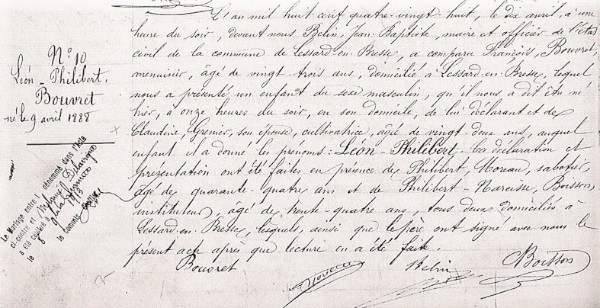 N° 10
Léon-Philibert,
Bouvret
né le 9 avril 1888
L'an mil huit cent quatre-vingt huit, le dix avril, à une
heure du soir, devant nous Belin, Jean-Baptiste, maire et officier de l'état
civil de la commune de Lessard-en-Bresse, a comparu François, Bouvret,
menuisier, âgé de vingt trois ans, domicilié à Lessard-en-Bresse, lequel
nous a présenté un enfant du sexe masculin, qu'il nous a dit être né
hier, à onze heures du soir, en son domicile, de lui déclarant et de
Claudine, Grenier, son épouse, cultivatrice, âgé de vingt deux ans, auquel
enfant il a donné les prénoms: Léon-Philibert. La déclaration et
présentation ont été faites en présence de Philibert, Moreau, sabotier,
âgé de quarante-quatre ans et de Philibert-Narcisse, Boisson,
instituteur, âgé de trente-quatre ans, tous deux domiciliés à
Lessard-en-Bresse, lesquels, ainsi que le père ont signé avec nous le
présent acte après que lecture en a été faite.
Bouvret
Moreau
Belin
Boisson